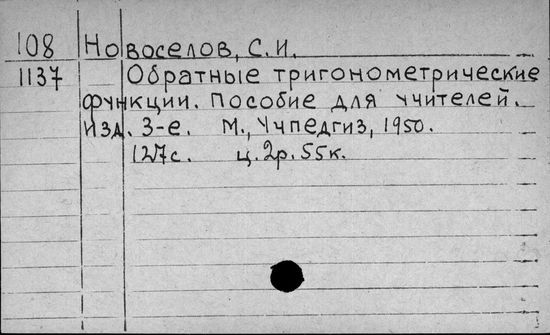 108 Новоселов, С. И.
1137 Обратные тригонометрические
функции. Пособие для учителей.
Изд. 3-е. М., Учпедгиз, 1950.
127с. ц. 2р. 55к.